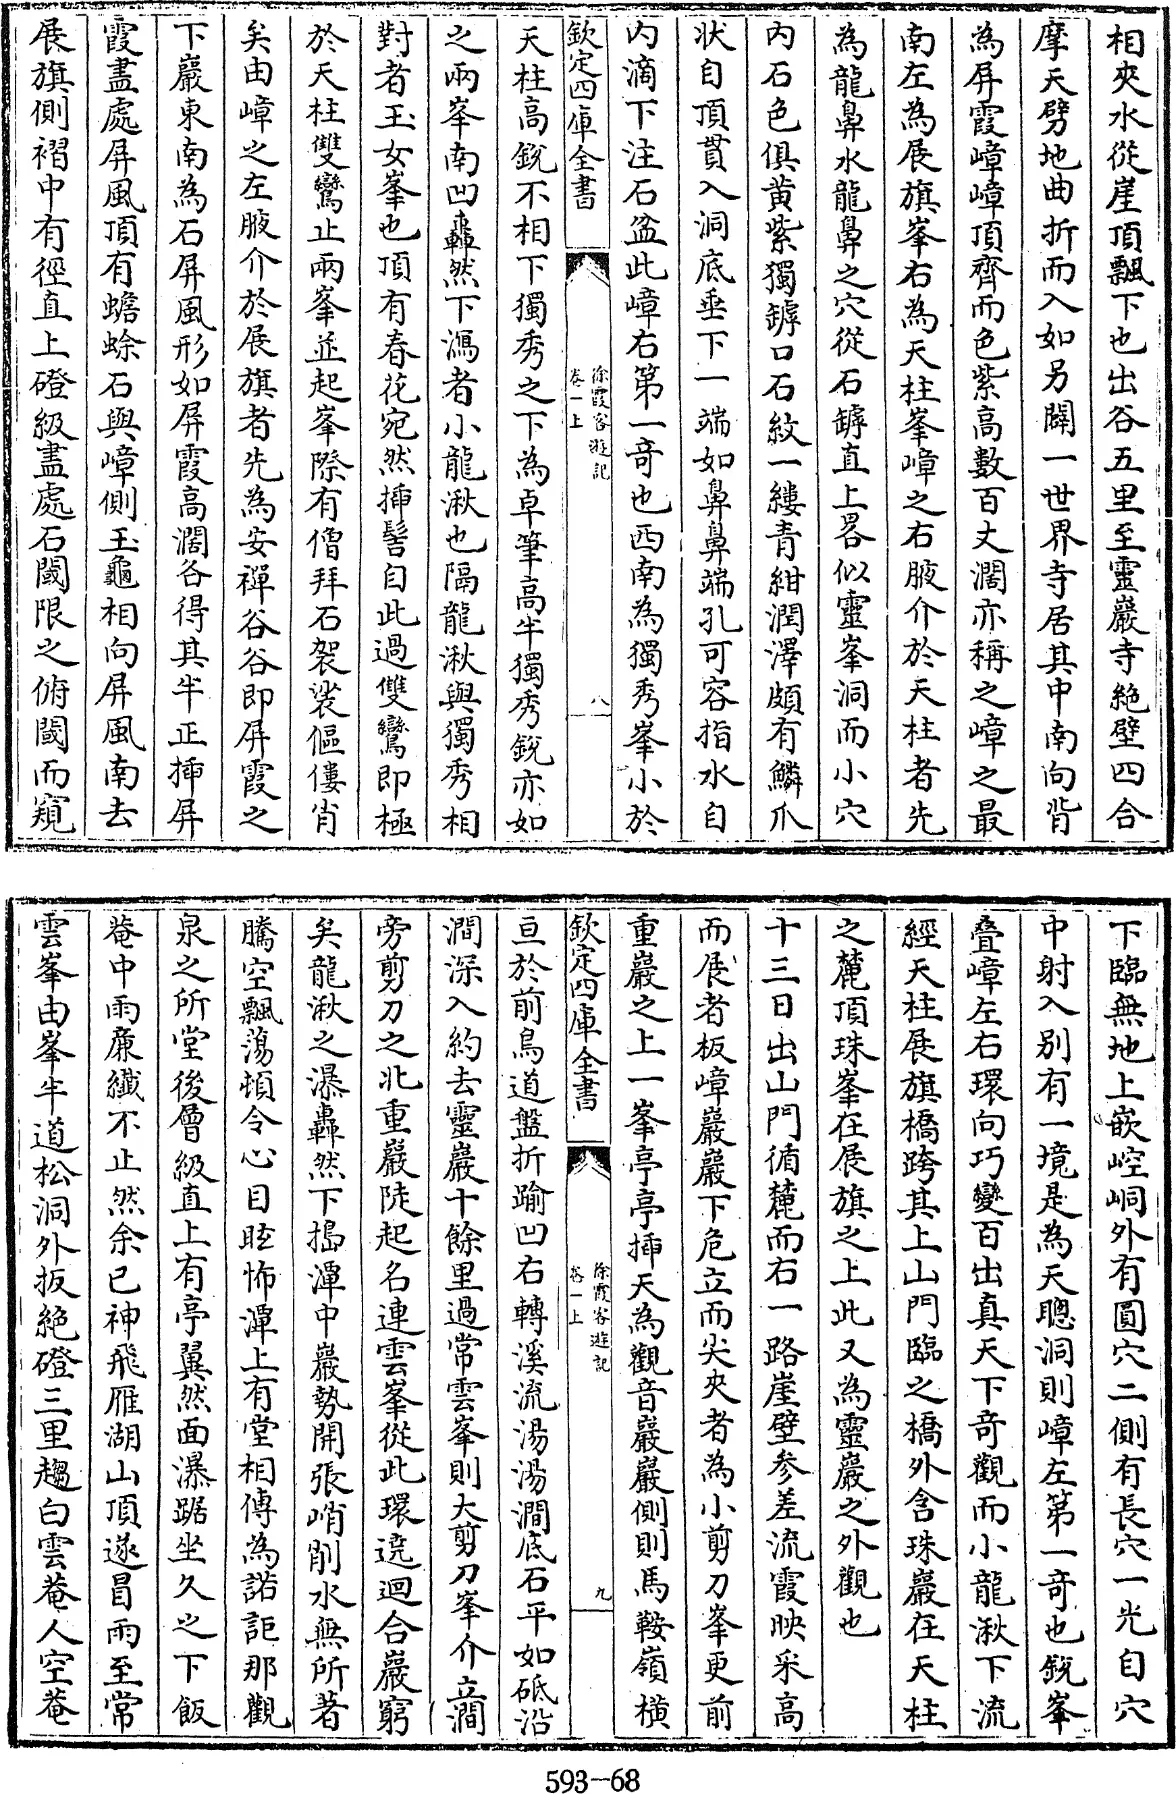 相夾水從崖頂飄下也出谷五里至靈巖寺絶壁四合
摩天劈地曲折而入如另闢一世界寺居其中南向背
為屏霞嶂嶂頂齊而色紫高數百丈濶亦稱之嶂之最
南左為展旗峯右為天柱峯嶂之右脇介於天柱者先
為龍鼻水龍鼻之穴從石罅直上畧似靈峯洞而小穴
内石色俱黄紫獨罅口石紋一縷青紺潤澤頗有鱗爪
状自頂貫入洞底垂下一端如鼻鼻端孔可容指水自
内滴下注石盆此嶂右第一奇也西南為獨秀峯小於
欽定四庫全書
徐霞客遊記
卷一上
八
天柱高鋭不相下獨秀之下為卓筆高半獨秀鋭亦如
之兩峯南凹轟然下瀉者小龍湫也隔龍湫與獨秀相
對者玉女峯也頂有春花宛然揷髻自此過雙鸞即極
於天柱雙鸞止兩峯並起峯際有僧拜石袈裟傴僂肖
矣由嶂之左腋介於展旗者先為安禪谷谷即屏霞之
下巖東南為石屏風形如屏霞高濶各得其半正揷屏
霞盡處屏風頂有蟾蜍石與嶂側玉龜相向屏風南去
展旗側褶中有徑直上磴級盡處石閾限之俯閾而窺
下臨無地上嵌崆峒外有圓穴二側有長穴一光自穴
中射入别有一境是為天聰洞則嶂左第一奇也鋭峯
叠嶂左右環向巧變百出真天下奇觀而小龍湫下流
經天柱展旗橋跨其上山門臨之橋外含珠巖在天柱
之麓頂珠峯在展旗之上此又為靈巖之外觀也
十三日出山門循麓而右一路崖壁參差流霞映采高
而展者板嶂巖巖下危立而尖夾者為小剪刀峯更前
重巖之上一峯亭亭揷天為觀音巖巖側則馬鞍嶺横
欽定四庫全書
徐霞客遊記
卷一上
九
亘於前鳥道盤折踰凹右轉溪流湯湯澗底石平如砥沿
澗深入約去靈巖十餘里過常雲峯則大剪刀峯介立澗
旁剪刀之北重巖陡起名連雲峯從此環遶迴合巖窮
矣龍湫之瀑轟然下搗潭中巖勢開張峭削水無所著
騰空飄蕩頓令心目眩怖潭上有堂相傳為諾詎那觀
泉之所堂後層級直上有亭翼然面瀑踞坐久之下飯
菴中雨簾纖不止然余已神飛雁湖山頂遂冒雨至常
雲峯由峯半道松洞外扳絶磴三里趨白雲菴人空菴
593-68